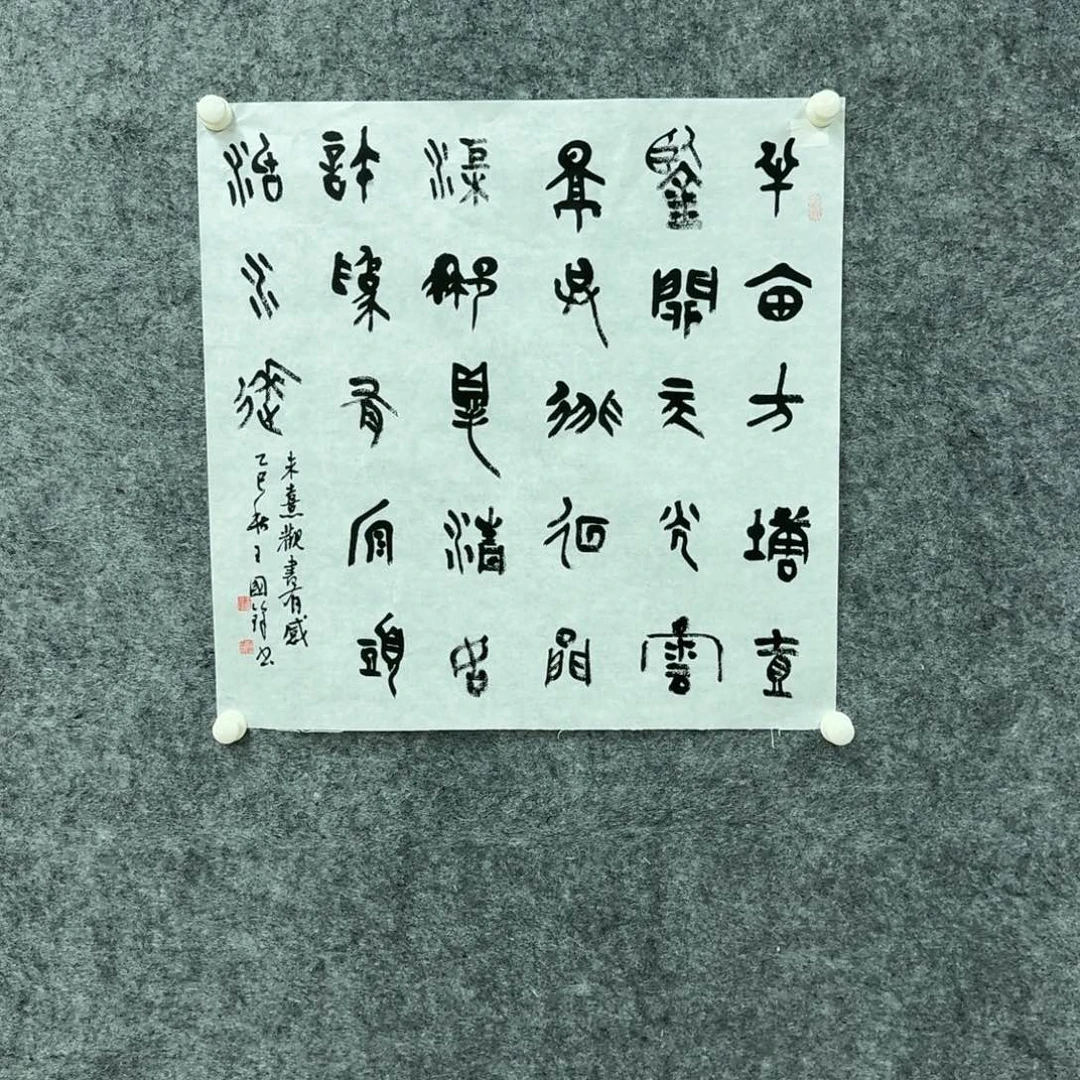 半畝方塘壹
鑒開天光雲
景共徘徊問
渠那得清如
許為有原頭
活水來
朱熹觀書有感
乙巳秋王國書